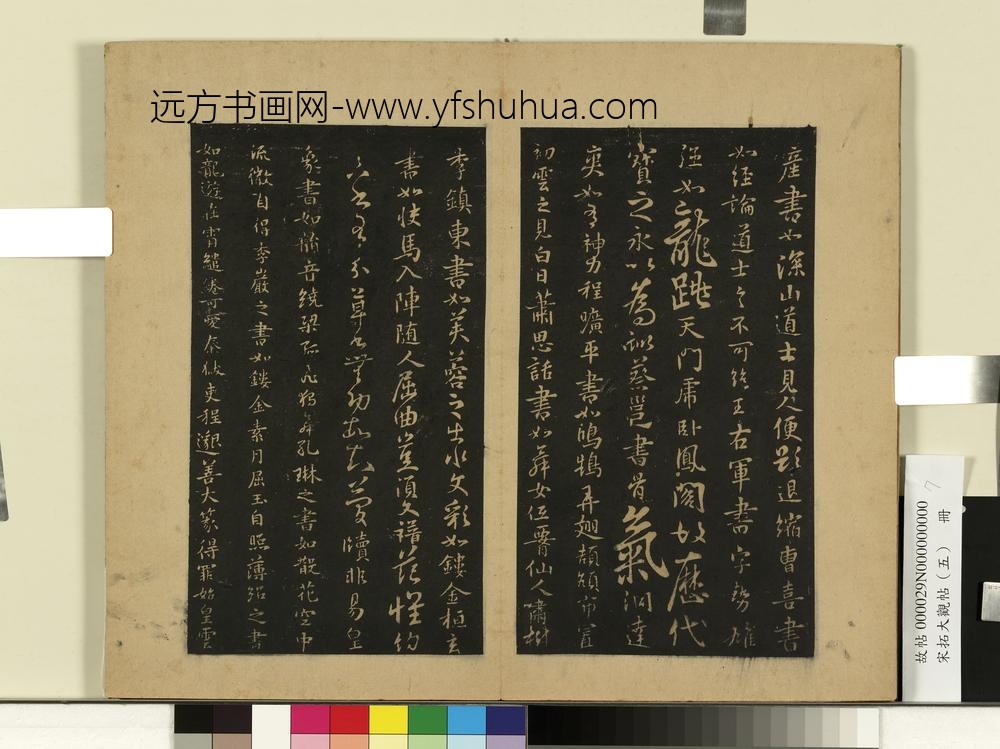 远方书画网-www.yfshuhua.com
產書如深山道士見人便欲退縮曹喜書
如經論道士言不可絕王右軍書字勢雄
强如龍跳天門虎臥鳳閣故歷代
寶之永以為訓蔡邕書骨氣洞達
爽如有神力程曠平書如鴻鵠弄翅頡頏布置
初雲之見白日蕭思話書如舞女低腰仙人嘯樹
李鎮東書如芙蓉之出水文彩如鏤金桓玄
書如快馬入陣隨人屈曲豈須文譜范懷約
真書有分草書無功故知簡牘非易皇
象書如韻音繞梁孤飛獨舞孔琳之書如散花空中
流徽自得李巖之書如鏤金素月屈玉自照薄紹之書
如龍遊在霄繾綣可愛秦獄吏程邈善大篆得罪始皇雲
故帖000029N000000000
宋拓大觀帖（五） 冊
7